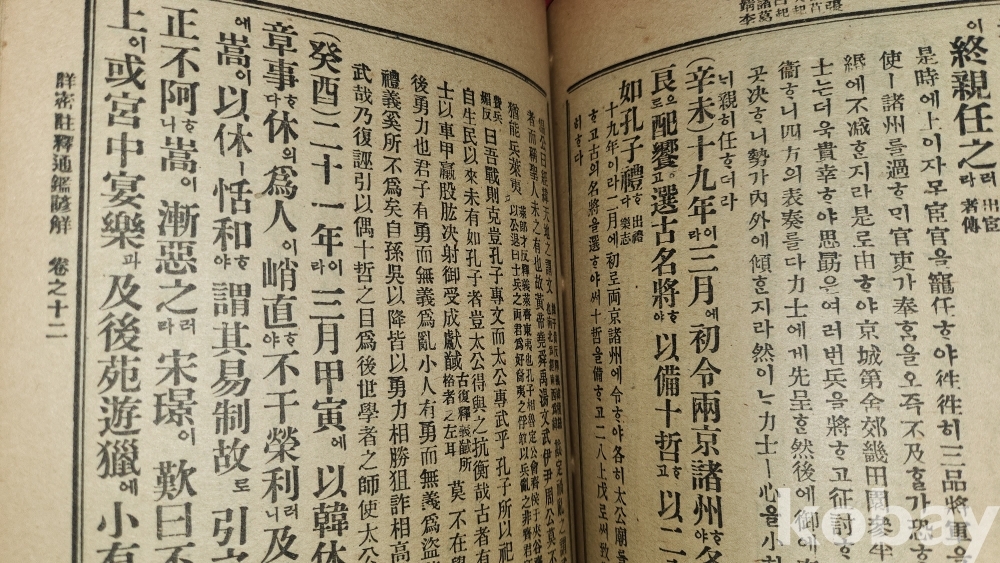 이 終親任之러라 出宦者傳
是時에 上이 자모 宦官을 寵任ᄒᆞ야 往往히 三品將軍을
使ㅣ 諸州를 過ᄒᆞᄆᆡ 官吏가 奉ᄒᆞᆷ을 오즉 不及ᄒᆞᆯ가 恐ᄒᆞ
緡에 不减ᄒᆞᆫ지라 是로 由ᄒᆞ야 京城第舍郊畿田園參半
士는 더욱 貴幸ᄒᆞ야 思勗은 여러번 兵을 將ᄒᆞ고 征討ᄒᆞ
衛ᄒᆞ니 四方의 表奏를 다 力士에게 先呈ᄒᆞᆫ 然後에 御에
곳 决ᄒᆞ니 勢가 內外에 傾ᄒᆞᆫ지라 然이나 力士ㅣ 心을 小히
늬 親히 任ᄒᆞ더라
(辛未)十九年이라 三月에 初令兩京諸州各
艮으로 配饗ᄒᆞ고 選古名將ᄒᆞ야 以備十哲ᄒᆞ고 以二
如孔子禮ᄒᆞ다 出禮樂志
十九年이라 三月에 初로 両京諸州에 令ᄒᆞ야 各히 太公廟를
ᄒᆞ고 古의 名將을 選ᄒᆞ야 써 十哲을 備ᄒᆞ고 二八上戊로써 致
ᄒᆞ다
者而稱聖人未之有也故黃帝堯舜禹湯文武伊尹周公莫不
猶能兵萊夷
曰吾戰則克豈孔子專文而太公專武乎孔子所以祀
自生民以來未有如孔子者豈太公得與之抗衡哉古者有
士以車甲贏股肱决射御受成獻馘 莫不在學
後勇力也君子有勇而無義爲亂小人有勇而無義爲盜
禮義奚所不爲矣自孫吳以降皆以勇力相勝狙詐相高
武哉乃復誣引以偶十哲之目爲後世學者之師使太公
(癸酉)二十一年이라 三月甲寅에 以韓休
章事ᄒᆞ다 休의 爲人이 峭直ᄒᆞ야 不干榮利러니 及
에 嵩이 以休ㅣ 恬和ᄒᆞ야 謂其易制故로 引
正不阿ᄒᆞ나 嵩이 漸惡之러라 宋璟이 歎曰不
上이 或宮中宴樂과 及後苑遊獵에 小有
詳密註釋通鑑諺解 卷之十二
kobay